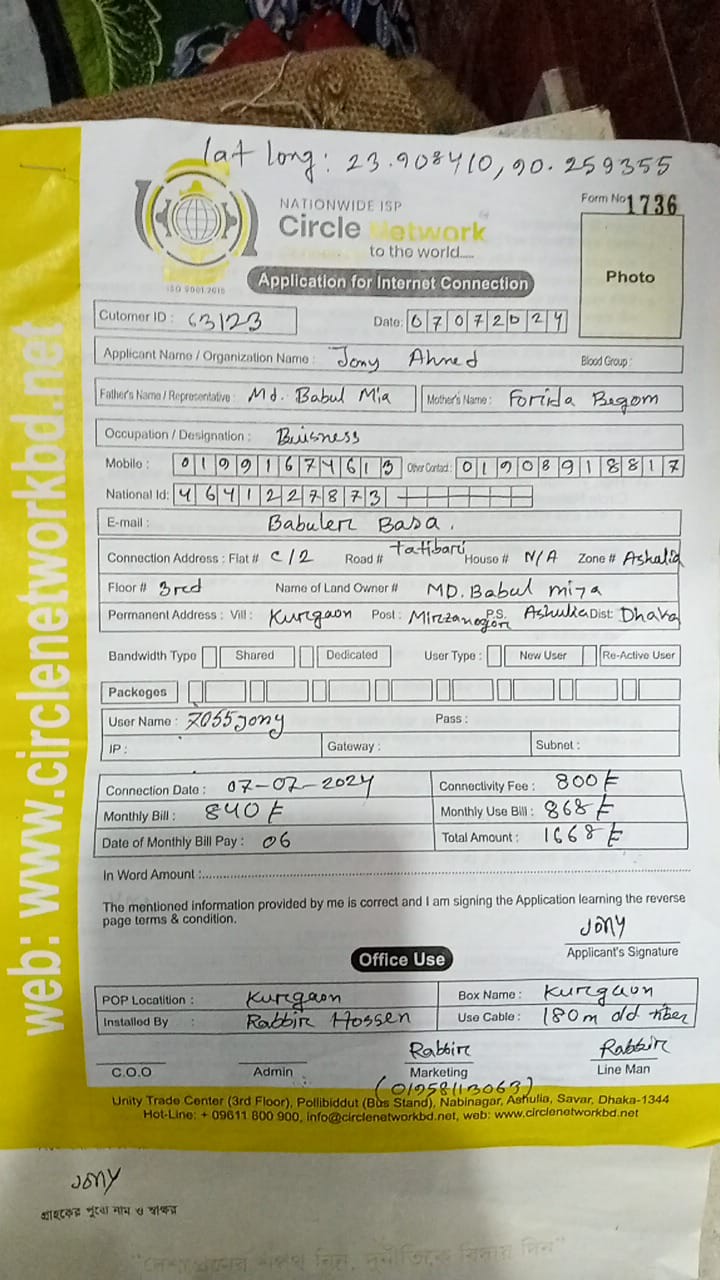 lat long: 23.908410, 90.259355
NATIONWIDE ISP
Circle Network
to the world.....
ISO 9001:2015
Form No 1736
Photo
Application for Internet Connection
Cutomer ID : 63123
Date: 07072024
Applicant Name / Organization Name : Jony Ahmed Blood Group :
Father's Name / Representative : Md. Babul Mia Mother's Name : Forida Begom
Occupation / Designation : Buisness
Mobile : 01991674613 Other Contact : 01908918817
National Id: 4641227873
E-mail : Babuler Basa.
Connection Address : Flat # C/2 Road # tatibari House # N/A Zone # Ashulia
Floor # 3rd Name of Land Owner # MD. Babul miya
Permanent Address : Vill : Kurgaon Post : Mirzanogor P.S. Ashulia Dist: Dhaka
Bandwidth Type Shared Dedicated User Type : New User Re-Active User
Packeges
User Name : 7055jony Pass :
IP : Gateway : Subnet :
Connection Date : 07-07-2024 Connectivity Fee : 800 ৳
Monthly Bill : 840 ৳ Monthly Use Bill : 868 ৳
Date of Monthly Bill Pay : 06 Total Amount : 1668 ৳
In Word Amount :
The mentioned information provided by me is correct and I am signing the Application learning the reverse
page terms & condition.
Jony
Applicant's Signature
Office Use
POP Locatition : Kurgaon Box Name : Kurgaon
Installed By : Rabbir Hossen Use Cable : 180m old fiber
Rabbir Rabbir
C.O.O Admin Marketing Line Man
(01958113063)
Unity Trade Center (3rd Floor), Pollibiddut (Bus Stand), Nabinagar, Ashulia, Savar, Dhaka-1344
Hot-Line: + 09611 800 900, info@circlenetworkbd.net, web: www.circlenetworkbd.net
web: www.circlenetworkbd.net
Jony
গ্রাহকের পুরো নাম ও স্বাক্ষর